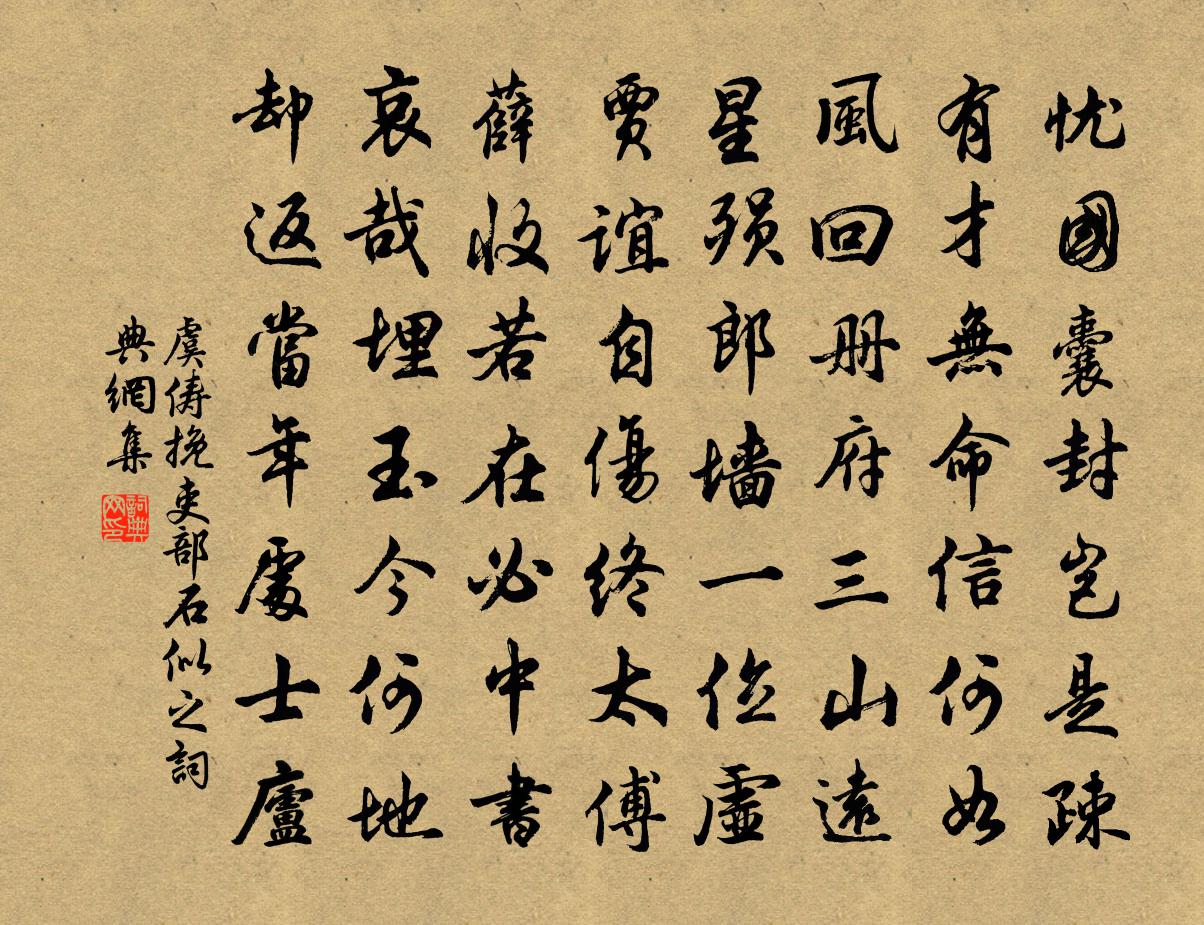 忧國囊封岂是疎
有才無命信何如
風回册府三山遠
星殞郎墙一位虛
賈誼自傷終太傅
薛收若在必中書
哀哉埋玉今何地
却返當年處士廬
虞儔挽吏部石似之詞
典網集
詞典网印